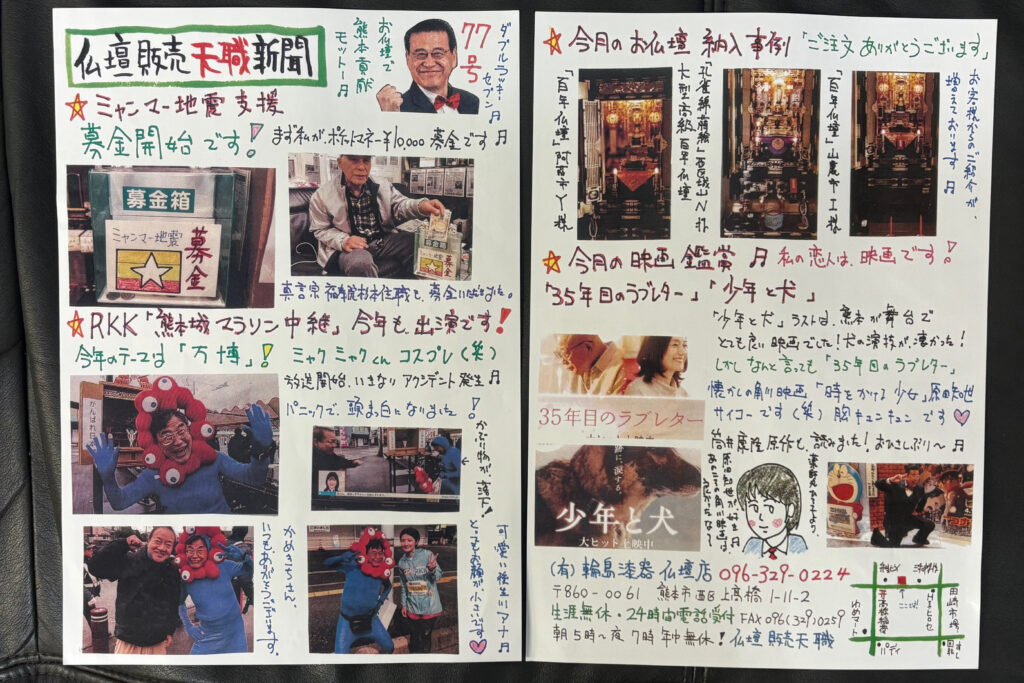 仏壇販売天職新聞
お仏壇で
熊本貢献
モットー♬
ダブルラッキー
セブン
77号
☆ミャンマー地震支援
募金開始です!
まず私が、ポケットマネー¥10,000募金です♬
募金箱
ミャンマー地震
募金
募金箱
募金
☆RKK「熊本城マラソン中継」今年も出演です!
今年のテーマは「万博」!ミャクミャクくんコスプレ(笑)
放送開始、いきなりアクシデント発生♬
パニックで、頭真白になりました!
かぶり物が、落下!
がんばれ日
かめきちさん、
いつもありがとうございます。
可愛い後生川アナ
とてもお顔が小さいです♥
☆今月のお仏壇納入事例「ご注文ありがとうございます」
「百年仏壇」阿蘇市Y様
大型高級百年仏壇
「百年仏壇」山鹿市I様
お客様からのご紹介が、
増えております♬
☆今月の映画鑑賞♬私の恋人は、映画です!
「35年目のラブレター」「少年と犬」
「少年と犬」ラストは、熊本が舞台で
とても良い映画でした!犬の演技が、凄かった!
しかしなんと言っても「35年目のラブレター」
懐かしの角川映画「時をかける少女」原田知世
サイコーです(笑)胸キュンキュンです♥
筒井康隆原作も、読みました!おひさしぶり〜♬
35年目のラブレター
少年と犬
大ヒット上映中
原田知世が、好き♬
(有)輪島漆器仏壇店 096-329-0224
〒860-0061 熊本市西区上高橋1-11-2
生涯無休・24時間電話受付 FAX096(329)0259
朝5時〜夜7時年中無休!仏壇販売天職
ここ!
田崎市場
ゆめマート